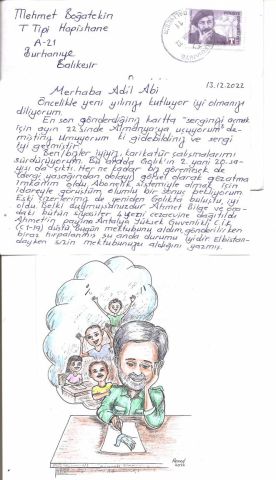 Mehmet Boğatekin
T Tipi Hapishane
A-21
Burhaniye
Balıkesir
13.12.2022
Merhaba Adil Abi
Öncelikle yeni yılınızı kutluyor iyi olmanızı
diliyorum.
En son gönderdiğiniz kartta "sergimizi açmak
için ayın 22'sinde Almanya'ya uçuyorum" de-
miştiniz umuyorum ki gidebildiniz ve sergi
iyi geçmiştir.
Ben/bizler iyiyiz, karikatür çalışmalarımı
sürdürüyorum. Bu arada Golik'in 2. yani 20. sa-
yısı da çıktı. Her ne kadar biz göremesek de
dergiyi yasağından dolayı görsel olarak gözatma
imkanım oldu. Abonelik sistemiyle almak için
idareyle görüştüm olumlu bir sonuç bekliyorum.
Eski çizerlerimiz de yeniden Golik'te buluştu, iyi
oldu. Belki duymuşsunuzdur Ahmet Bilge ve ora-
daki bütün siyasiler 4 yeri cezaevine dağıtıldı
Ahmet'in payına Antalya Yüksek Güvenlikli C.İ.K
(C1-19) düştü. Bugün mektubunu aldım, gönderilirken
biraz hırpalanmış şu anda durumu iyidir. Elbistan-
dayken sizin mektubunuzu aldığını yazmış.
2022